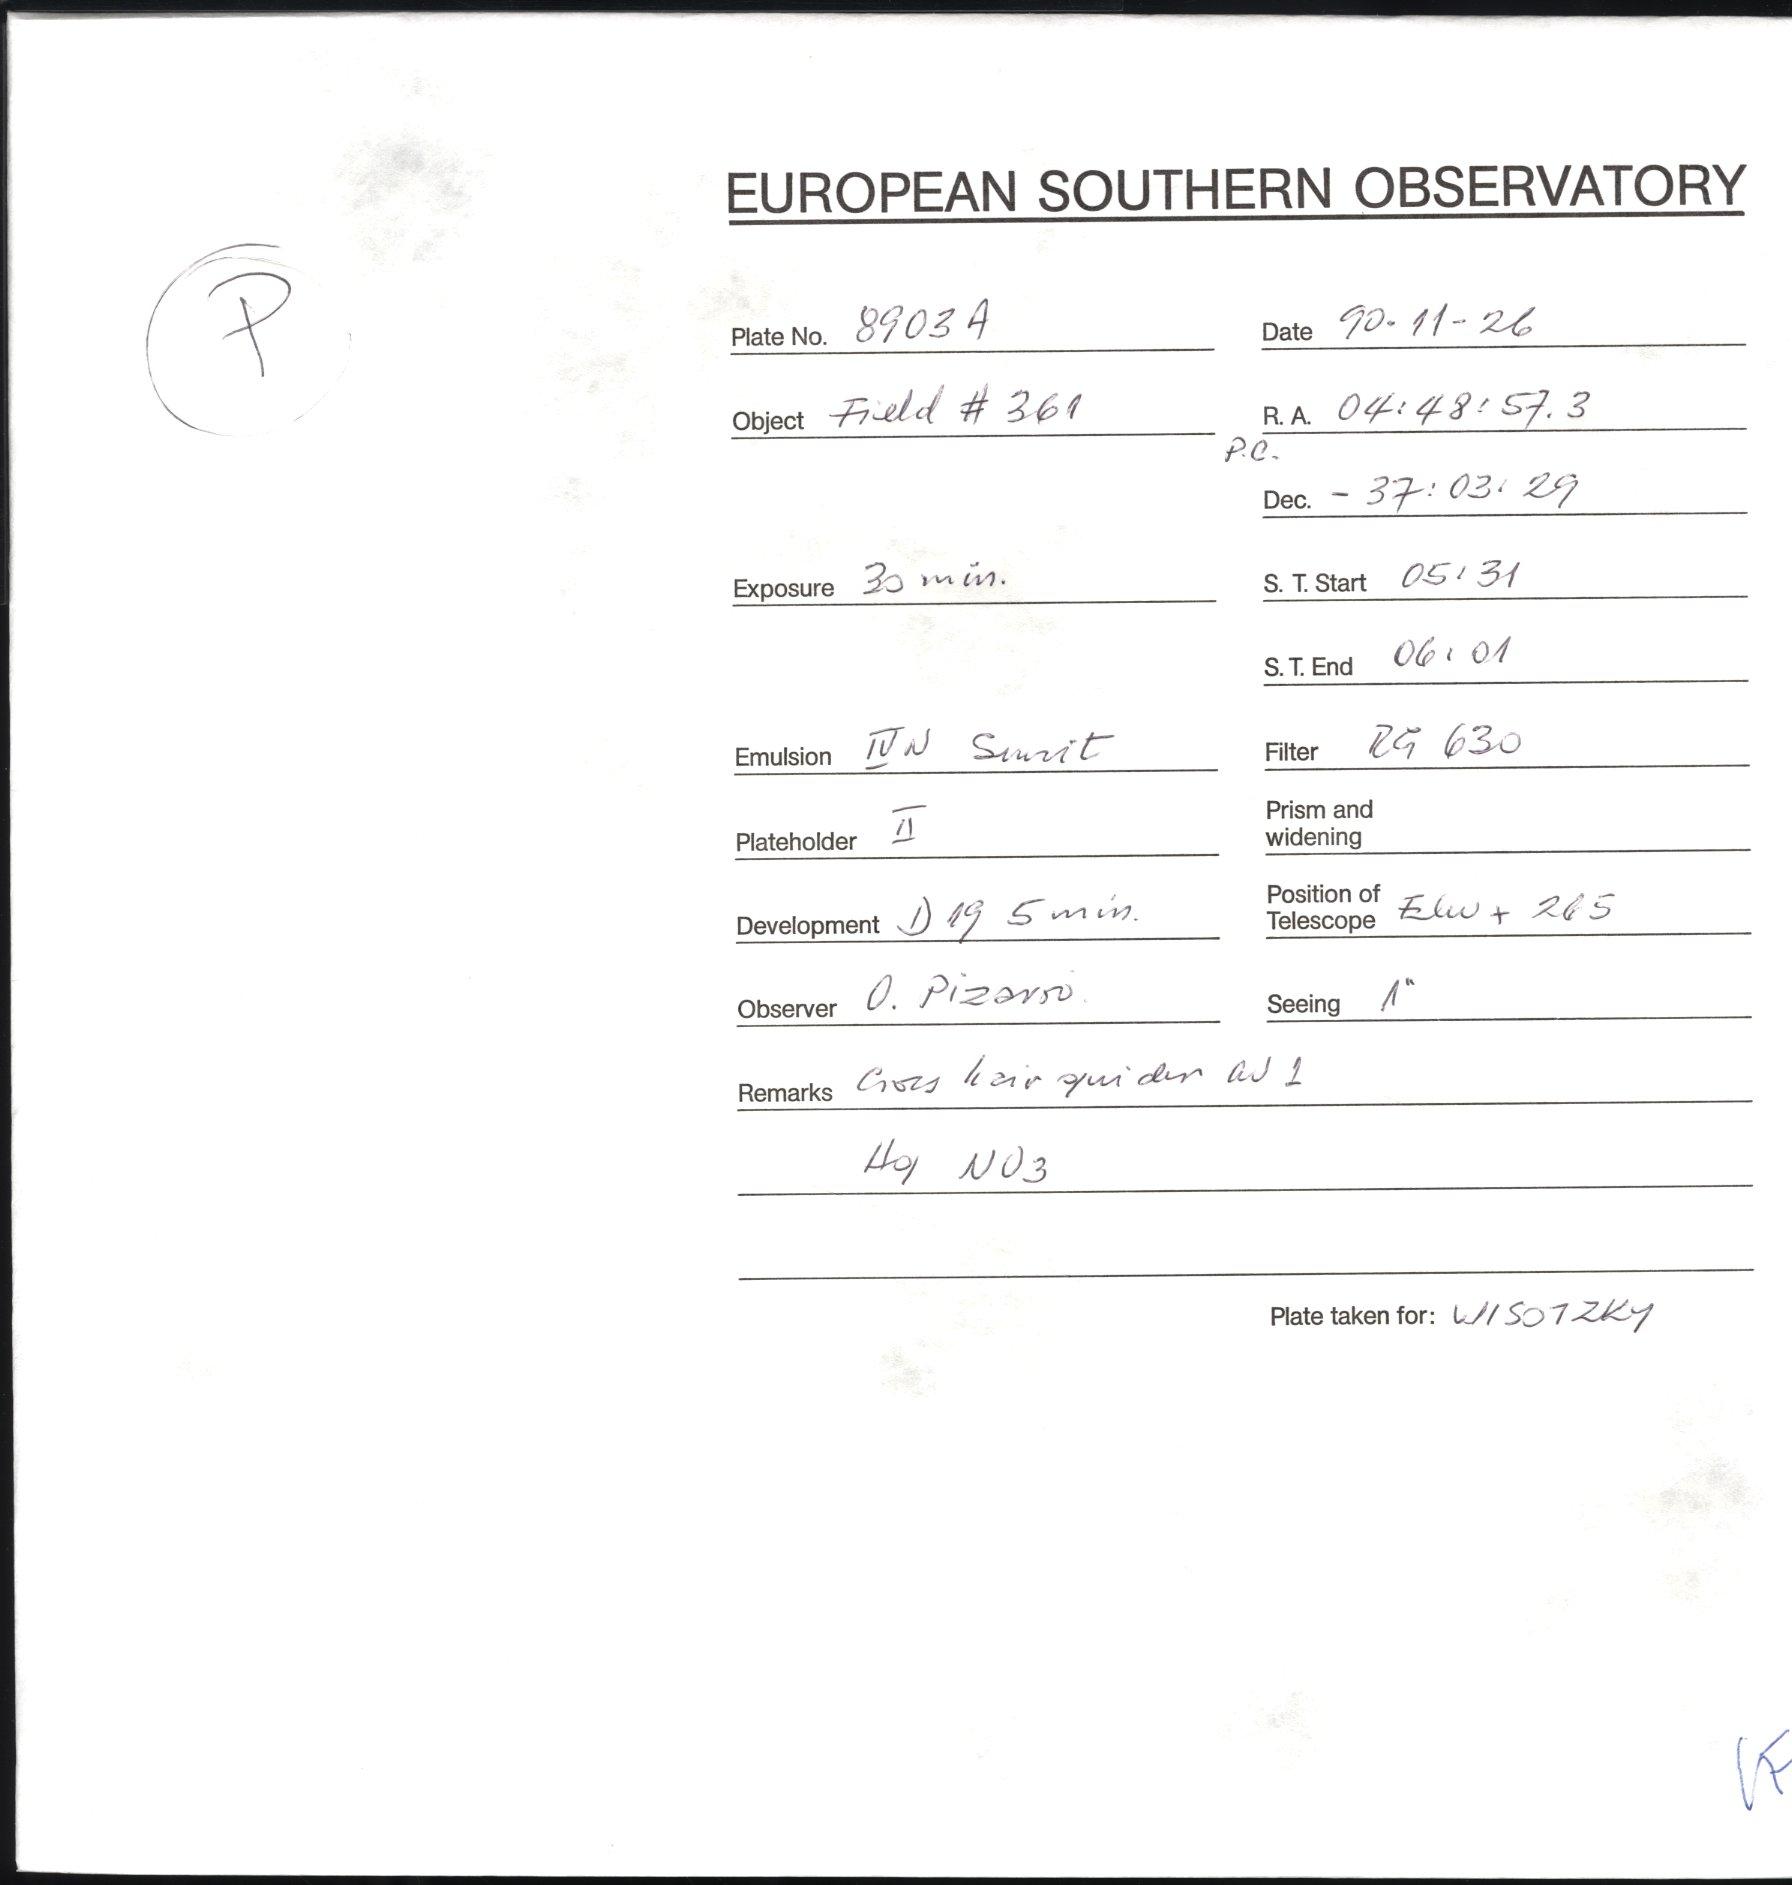 EUROPEAN SOUTHERN OBSERVATORY
P
Plate No. 8903 A
Date 90-11-26
Object Field # 361
R. A. 04:48:57.3
P.C.
Dec. - 37:03:29
Exposure 30 min.
S. T. Start 05:31
S. T. End 06:01
Emulsion IV N
Filter RG 630
Plateholder II
Prism and
widening
Development D 19 5 min.
Position of
Telescope + 265
Observer O. Pizarro.
Seeing 1"
Remarks Cross hair guider 1
NO3
Plate taken for: WISOTZKY